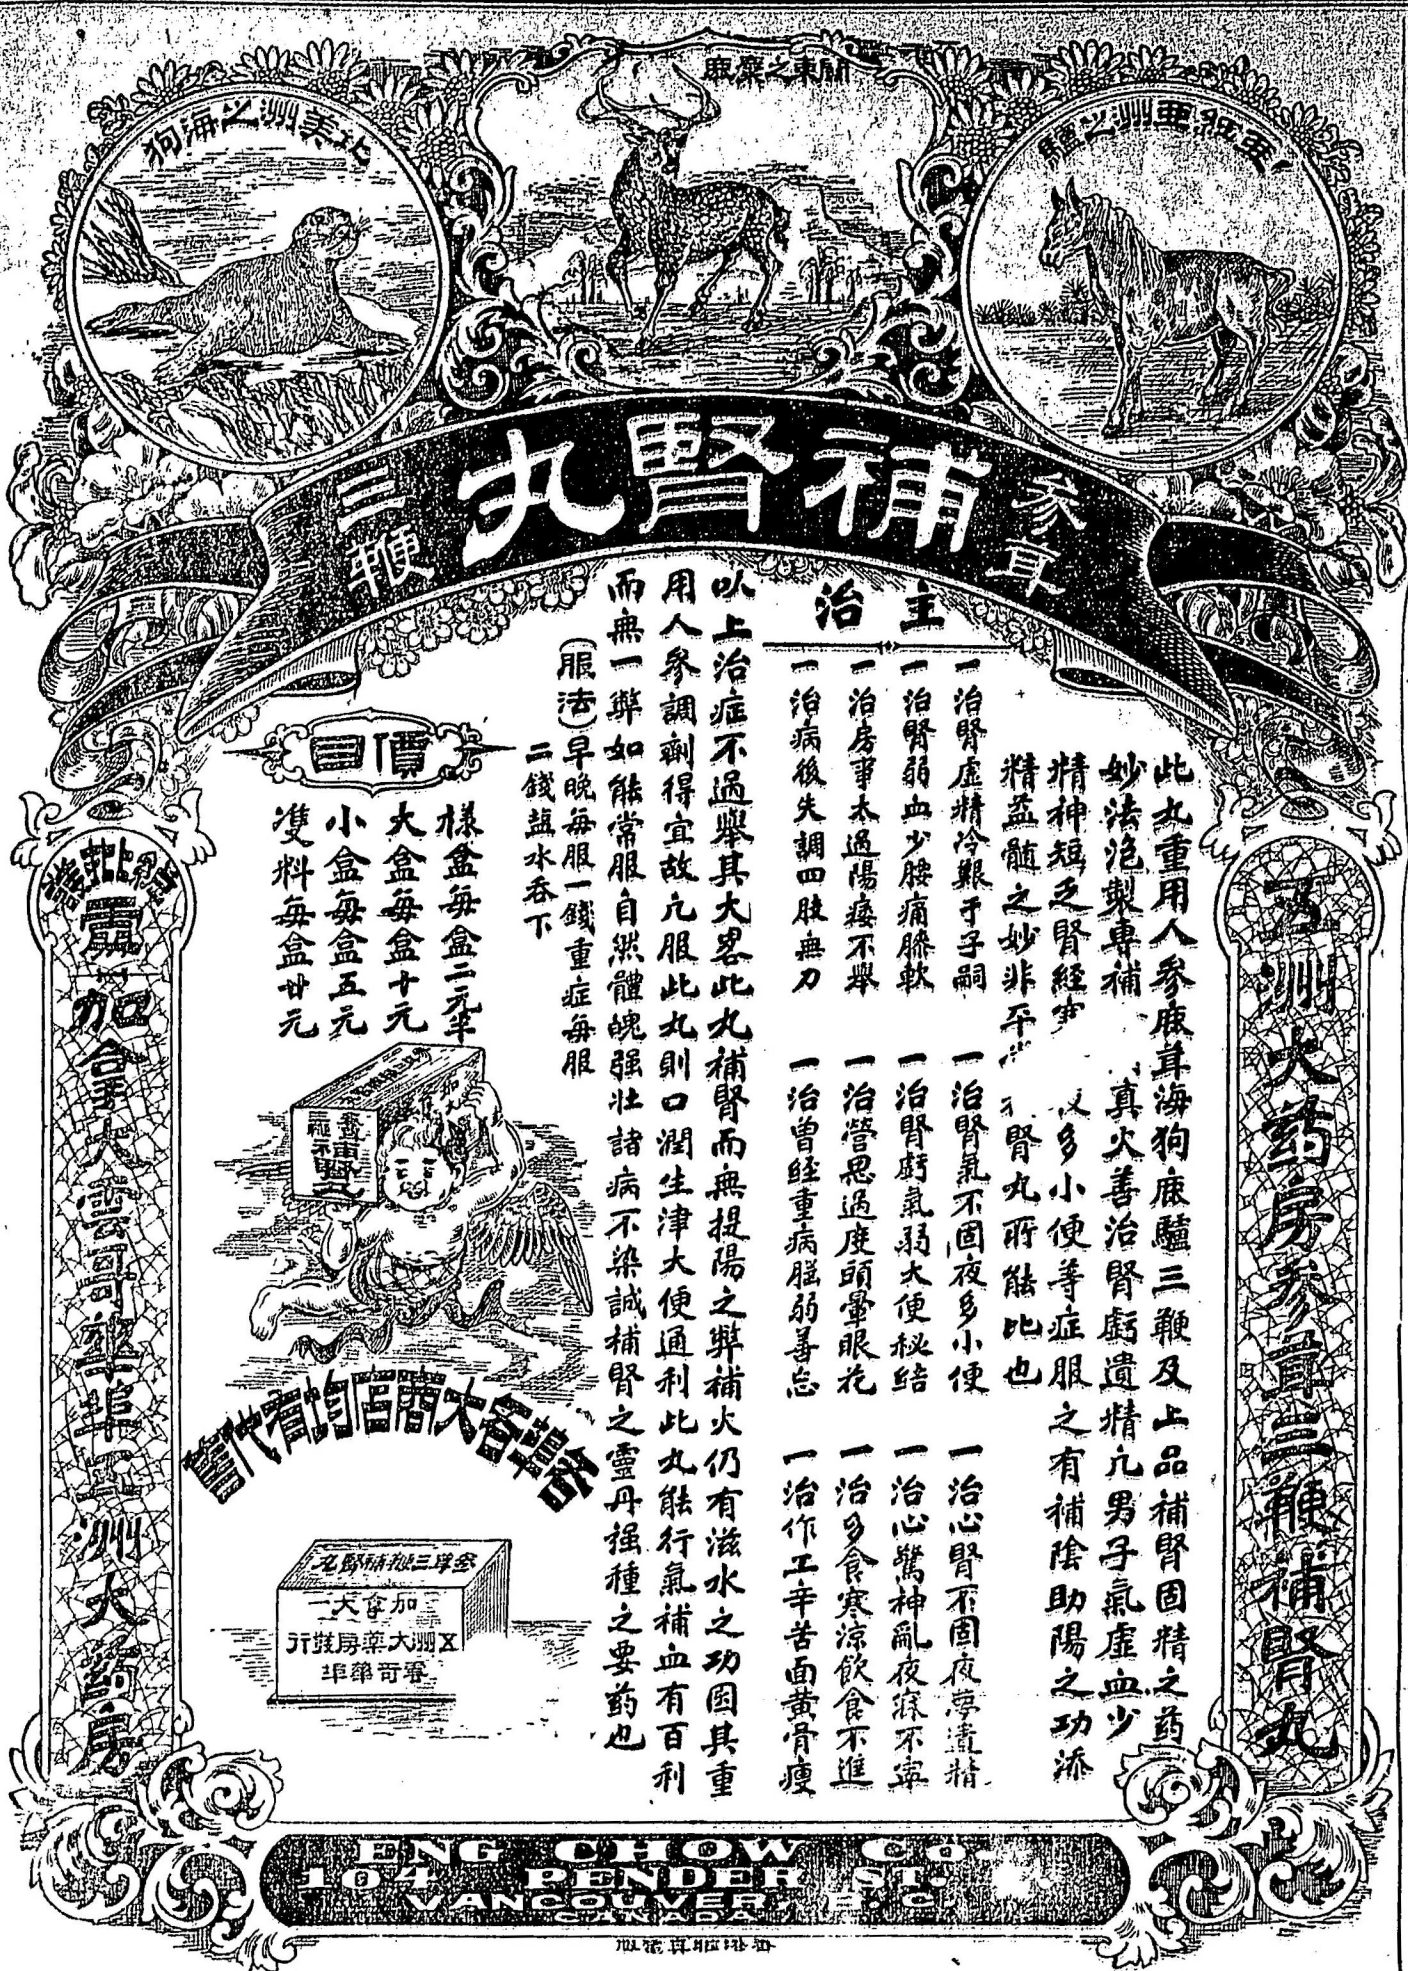 北美洲之海狗
關東之麋鹿
亞細亞洲之驢
參茸
補腎丸
三鞭
五洲大葯房參茸三鞭補腎丸
此丸重用人參鹿茸海狗鹿驢三鞭及上品補腎固精之葯
妙法泡製專補 真火善治腎虧遺精凢男子氣虛血少
精神短乏腎經 多小便等症服之有補陰助陽之功添
精益髓之妙非平 腎丸所能比也
主治
一治腎虛精冷艱于子嗣
一治腎氣不固夜多小便
一治心腎不固夜夢遺精
一治腎弱血少腰痛膝軟
一治腎虧氣弱大便秘結
一治心驚神亂夜寐不寧
一治房事太過陽痿不舉
一治營思過度頭暈眼花
一治多食寒涼飲食不進
一治病後失調四肢無力
一治曾經重病腦弱善忘
一治作工辛苦面黃骨瘦
以上治症不過舉其大畧此丸補腎而無提陽之弊補火仍有滋水之功因其重
用人參調劑得宜故凢服此丸則口潤生津大便通利此丸能行氣補血有百利
而無一弊如能常服自然體魄强壯諸病不染誠補腎之靈丹强種之要葯也
(服法)早晚每服一錢重症每服
二錢盐水吞下
價目
樣盒每盒二元半
大盒每盒十元
小盒每盒五元
雙料每盒廿元
參茸三鞭補腎丸
各埠各大商店均有代售
參茸三鞭補腎丸
加拿大
五洲大藥房發行
雲哥華埠
總批發處
加拿大雲哥華埠五洲大葯房
ENG CHOW Co.
104 PENDER ST.
VANCOUVER, B.C.
CANADA